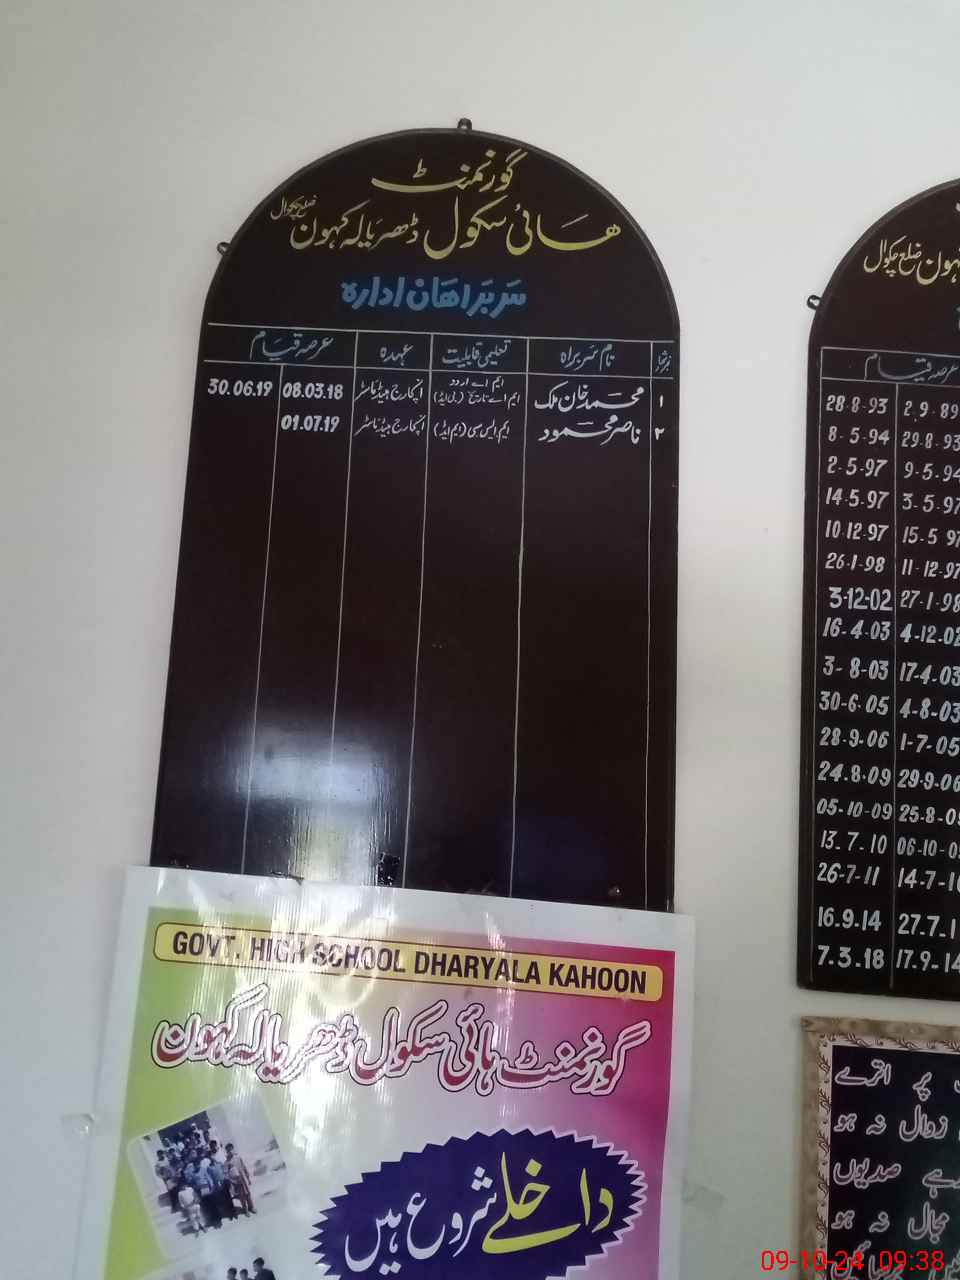 گورنمنٹ
ھائی سکول ڈھریالہ کہون ضلع چکوال
سربراھان ادارہ
نمبر شمار نام سربراہ تعلیمی قابلیت عہدہ عرصہ قیام
۱ محمد خان ملک ایم اے اردو ایم اے تاریخ (بی ایڈ) انچارج ہیڈ ماسٹر 08.03.18 30.06.19
۲ ناصر محمود ایم ایس سی (ایم ایڈ) انچارج ہیڈ ماسٹر 01.07.19
GOVT. HIGH SCHOOL DHARYALA KAHOON
گورنمنٹ ہائی سکول ڈھریالہ کہون
داخلے شروع ہیں
کہون ضلع چکوال
عرصہ قیام
28-8-93 2.9.89
8-5-94 29-8-93
2-5-97 9-5-94
14-5-97 3-5-97
10-12-97 15-5-97
26-1-98 11-12-97
3-12-02 27-1-98
16-4-03 4-12-02
3-8-03 17-4-03
30-6-05 4-8-03
28-9-06 1-7-05
24.8.09 29-9-06
05-10-09 25-8-09
13.7.10 06-10-09
26-7-11 14-7-10
16.9.14 27.7.1
7.3.18 17.9-14
پر اترے
زوال نہ ہو
رہے صدیوں
مجال نہ ہو
09-10-24 09:38